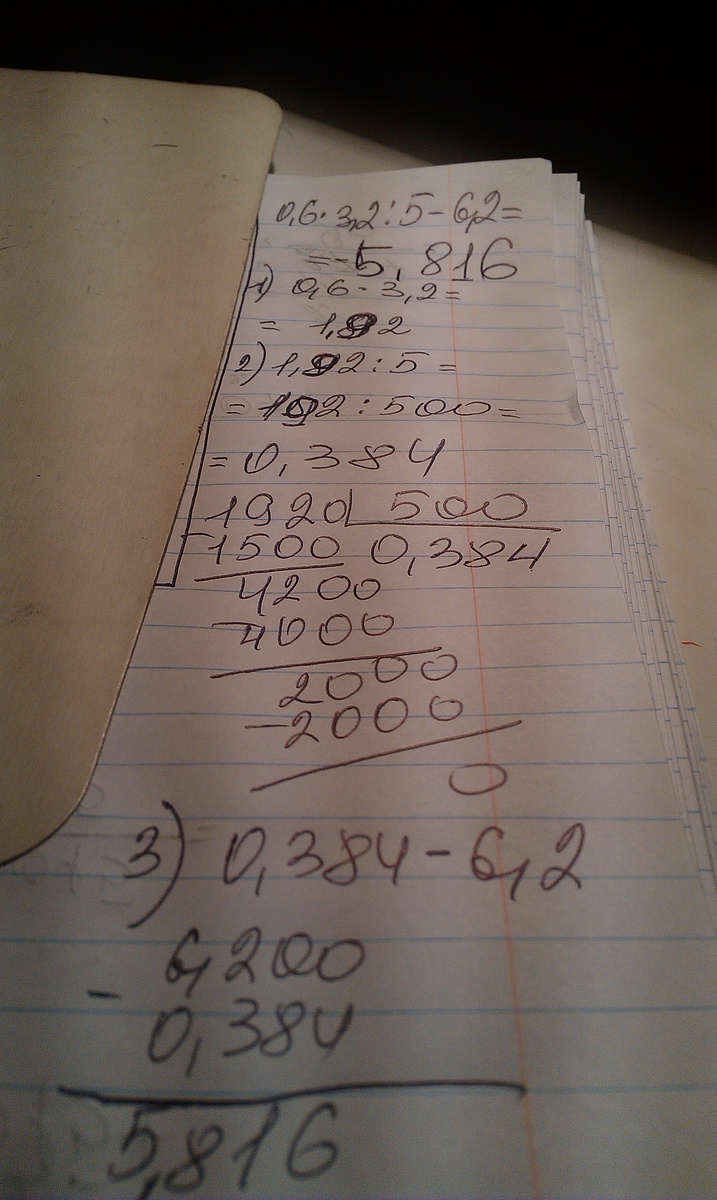 0,6·3,2:5-6,2=
=-5,816
1) 0,6·3,2=
= 1,92
2) 1,92:5=
=192:500=
=0,384
1920 500
-1500 0,384
4200
-4000
2000
-2000
0
3) 0,384-6,2
6,200
-
0,384
5,816